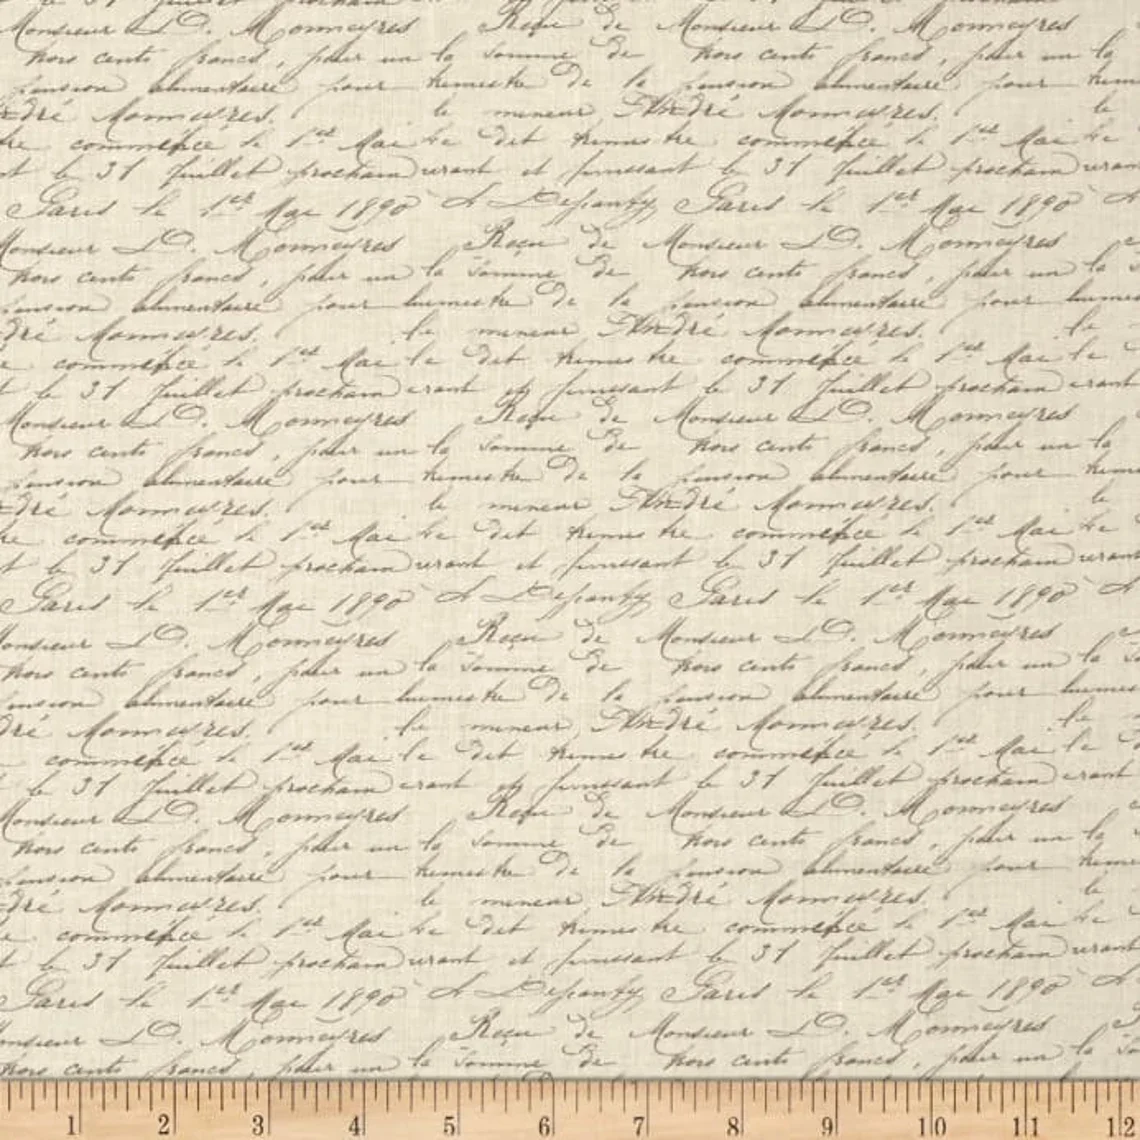 Monsieur D. Monneyres Reçu de Monsieur D. Monneyres
trois cents francs, pour un la Somme de trois cents francs, pour un la
pension alimentaire pour trimestre de la pension alimentaire pour
André Monnieyres. le mineur André Monnieyres. le
commencé le 1er Mai le dit trimestre commencé le 1er Mai le
le 31 Juillet prochain courant et finissant le 31 Juillet prochain courant
Paris le 1er Mai 1890 Paris le 1er Mai 1890
Monsieur D. Monneyres Reçu de Monsieur D. Monneyres
trois cents francs, pour un la Somme de trois cents francs, pour un la
pension alimentaire pour trimestre de la pension alimentaire pour
André Monnieyres. le mineur André Monnieyres. le
commencé le 1er Mai le dit trimestre commencé le 1er Mai le
le 31 Juillet prochain courant et finissant le 31 Juillet prochain courant
Monsieur D. Monneyres Reçu de Monsieur D. Monneyres
trois cents francs, pour un la Somme de trois cents francs, pour un la
pension alimentaire pour trimestre de la pension alimentaire pour
André Monnieyres. le mineur André Monnieyres. le
commencé le 1er Mai le dit trimestre commencé le 1er Mai le
le 31 Juillet prochain courant et finissant le 31 Juillet prochain courant
Paris le 1er Mai 1890 Paris le 1er Mai 1890
Monsieur D. Monneyres Reçu de Monsieur D. Monneyres
trois cents francs, pour un la Somme de trois cents francs, pour un la
pension alimentaire pour trimestre de la pension alimentaire pour
André Monnieyres. le mineur André Monnieyres. le
commencé le 1er Mai le dit trimestre commencé le 1er Mai le
le 31 Juillet prochain courant et finissant le 31 Juillet prochain courant
Monsieur D. Monneyres Reçu de Monsieur D. Monneyres
trois cents francs, pour un la Somme de trois cents francs, pour un la
pension alimentaire pour trimestre de la pension alimentaire pour
André Monnieyres. le mineur André Monnieyres. le
commencé le 1er Mai le dit trimestre commencé le 1er Mai le
le 31 Juillet prochain courant et finissant le 31 Juillet prochain courant
Paris le 1er Mai 1890 Paris le 1er Mai 1890
Monsieur D. Monneyres Reçu de Monsieur D. Monneyres
trois cents francs, pour un la Somme de trois cents francs, pour un la
1 2 3 4 5 6 7 8 9 10 11 12